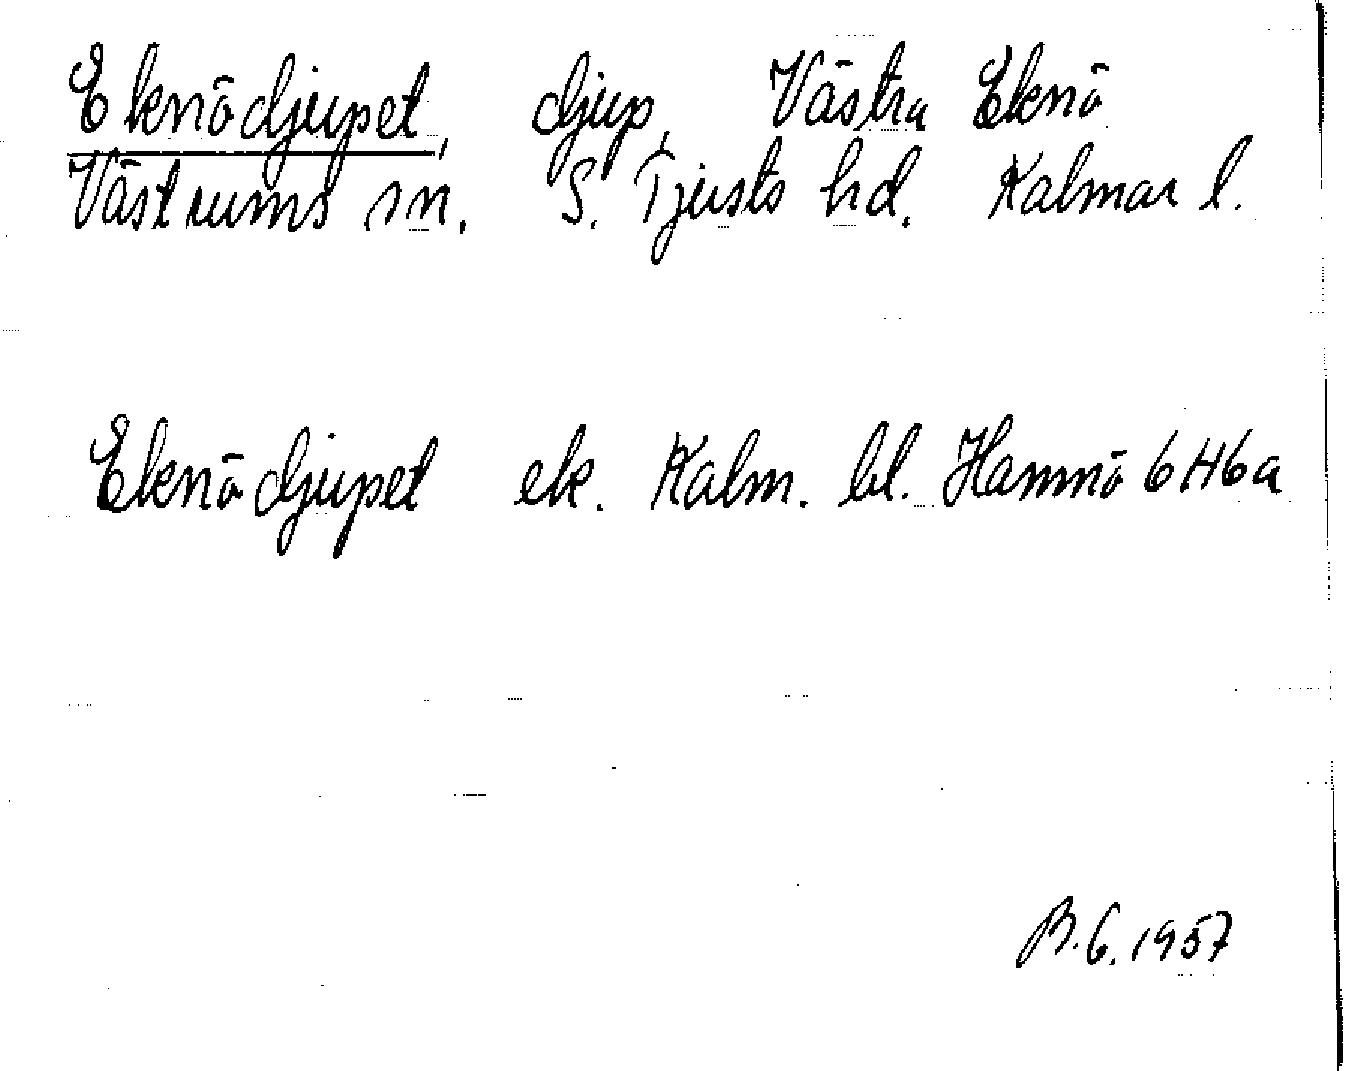 Eknödjupet, djup, Västra Eknö
Västrums sn. S. Tjusts hd. Kalmar l.
Eknödjupet ek. Kalm. bl. Hamnö 6H6a
B.G. 1957